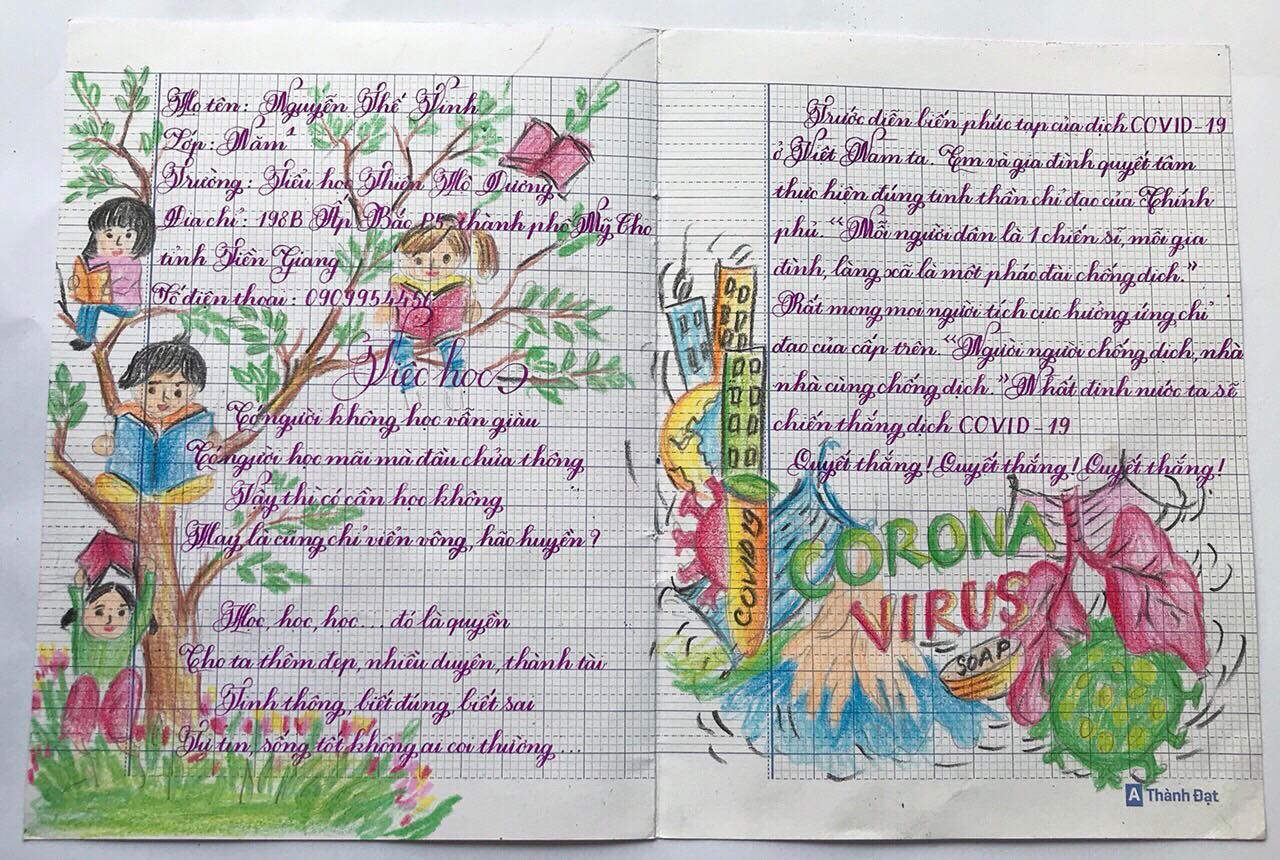 Họ tên: Nguyễn Thế Vinh
Lớp: Năm 1
Trường: Tiểu học Thiện Hộ Dương
Địa chỉ: 198B Ấp Bắc P5, thành phố Mỹ Tho
tỉnh Tiền Giang
Số điện thoại: 090995445
Việc học
Có người không học vẫn giàu
Có người học mãi mà đầu chửa thông
Vậy thì có cần học không
Hay là cũng chỉ viển vông, hão huyền?
Học, học, học... đó là quyền
Cho ta thêm đẹp, nhiều duyên, thành tài
Tinh thông, biết đúng, biết sai
Tự tin, sống tốt không ai coi thường...
Trước diễn biến phức tạp của dịch COVID-19
ở Việt Nam ta. Em và gia đình quyết tâm
thực hiện đúng tinh thần chỉ đạo của Chính
phủ. "Mỗi người dân là 1 chiến sĩ, mỗi gia
đình, làng xã là một pháo đài chống dịch."
Rất mong mọi người tích cực hưởng ứng chỉ
đạo của cấp trên. "Người người chống dịch, nhà
nhà cùng chống dịch." Nhất định nước ta sẽ
chiến thắng dịch COVID-19
Quyết thắng! Quyết thắng! Quyết thắng!
COVID 19
CORONA
VIRUS
SOAP
A Thành Đạt